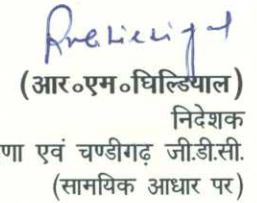 (आर०एम०घिल्डियाल)
निदेशक
णा एवं चण्डीगढ़ जी.डी.सी.
(सामयिक आधार पर)